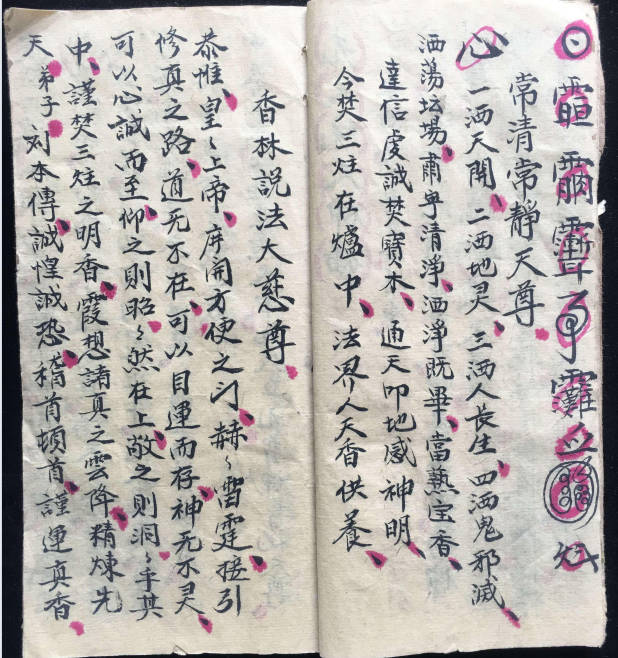 常清常靜天尊
心 一洒天開 二洒地灵 三洒人長生 四洒鬼邪滅
洒蕩坛塲 肅乎清淨 洒淨既畢 當爇宝香
達信虔誠焚寶木 通天叩地感神明
今焚三炷在爐中 法界人天香供養
香林説法大慈尊
恭惟 皇〻上帝 庌開方便之门 赫〻雷霆 接引
修真之路 道无不在 可以目運而存 神无不灵
可以心誠而至 仰之則昭〻然在上 敬之則洞〻乎其
中 謹焚三炷之明香 霞想諸真之雲降 精煉先
天 弟子 刘本傳 誠惶誠恐 稽首頓首 謹運真香